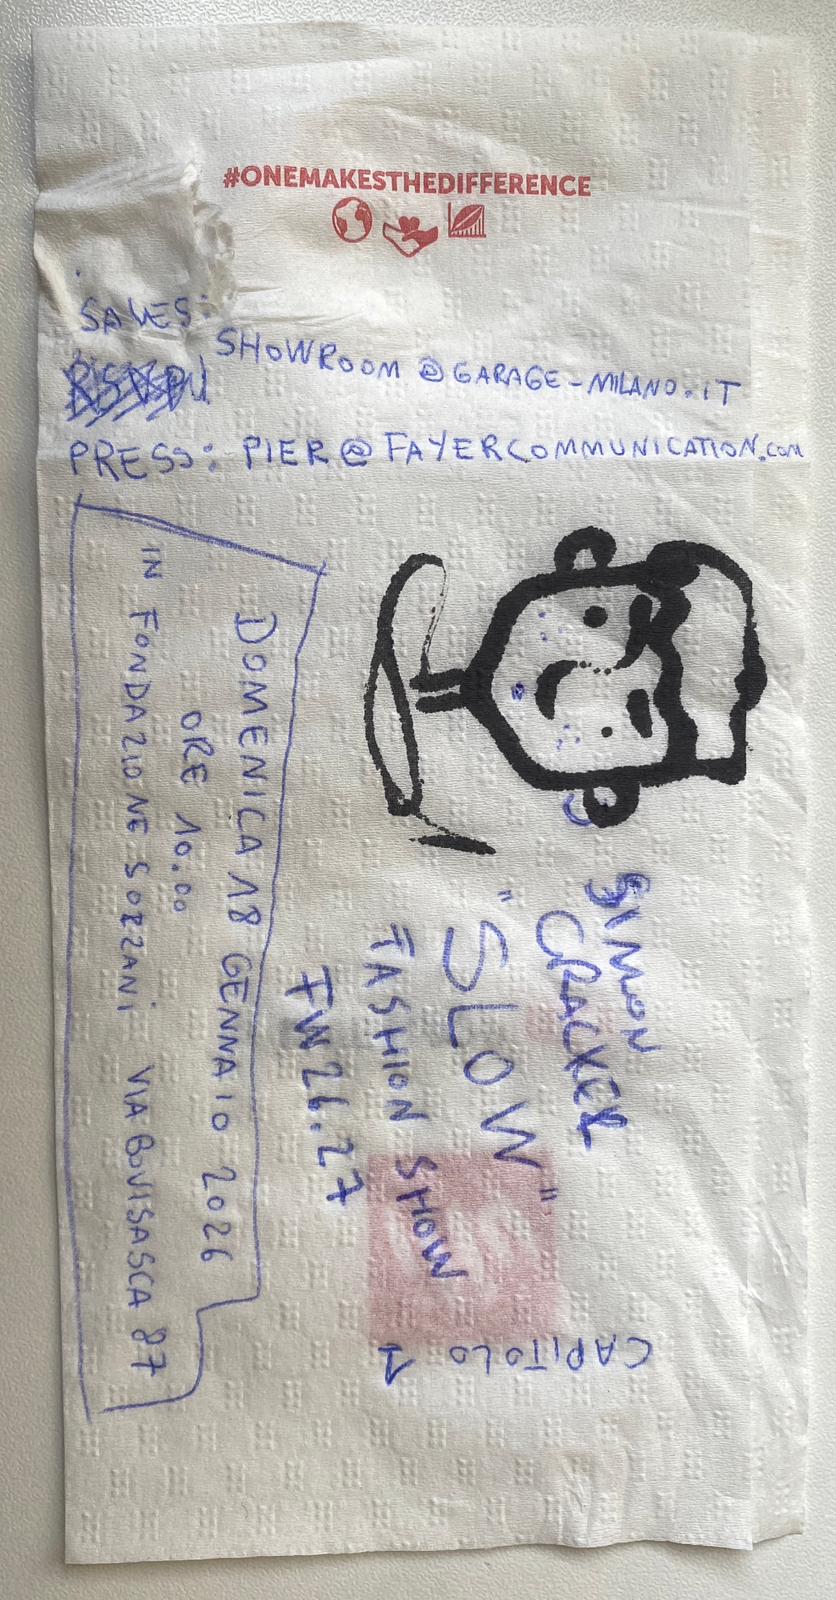 #ONEMAKESTHEDIFFERENCE
SALES: SHOWROOM@GARAGE-MILANO.IT
PRESS: PIER@FAYERCOMMUNICATION.COM
SIMON
CRACKER
"SLOW"
FASHION SHOW
FW26.27
CAPITOLO 1
DOMENICA 18 GENNAIO 2026
ORE 10.00
IN FONDAZIONE SOZZANI VIA BOVISASCA 87